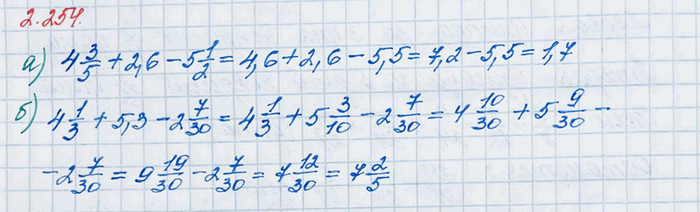 2.254.
а) 4 3/5 + 2,6 − 5 1/2 = 4,6 + 2,6 − 5,5 = 7,2 − 5,5 = 1,7
б) 4 1/3 + 5,3 − 2 7/30 = 4 1/3 + 5 3/10 − 2 7/30 = 4 10/30 + 5 9/30 −
− 2 7/30 = 9 19/30 − 2 7/30 = 7 12/30 = 7 2/5